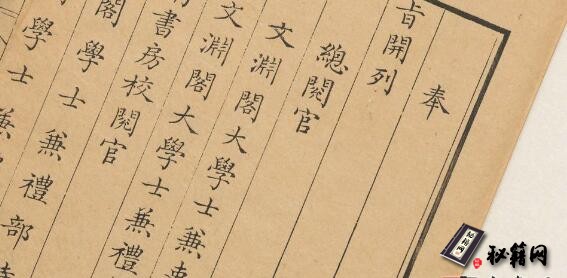 奉
旨開列
總閱官
文淵閣大學士兼
文淵閣大學士兼禮
書房校閱官
閣學士兼禮部
學士兼
秘籍网